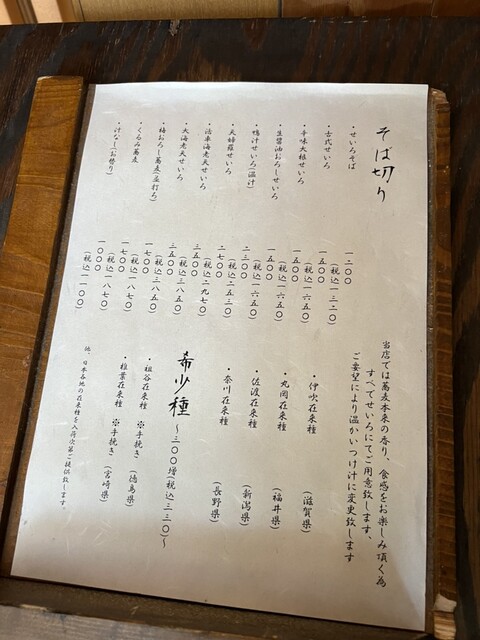 そば切り
・せいろそば 一二〇〇
(税込一三二〇)
・古式せいろ 一五〇〇
(税込一六五〇)
・辛味大根せいろ 一五〇〇
(税込一六五〇)
・生醤油おろしせいろ 一五〇〇
(税込一六五〇)
・鴨汁せいろ(温汁) 二三〇〇
(税込二五三〇)
・天婦羅せいろ 二七〇〇
(税込二九七〇)
・活車海老天せいろ 三五〇〇
(税込三八五〇)
・大海老天せいろ 三五〇〇
(税込三八五〇)
・梅おろし蕎麦 一七〇〇
(税込一八七〇)
・くるみ蕎麦 一七〇〇
(税込一八七〇)
・汁なし(お替り) 一〇〇〇
(税込一一〇〇)
当店では蕎麦本来の香り、食感をお楽しみ頂く為
すべてせいろにてご用意致します、
ご要望により温かいつけ汁に変更致します
・伊吹在来種 (滋賀県)
・丸岡在来種 (福井県)
・佐渡在来種 (新潟県)
・奈川在来種 (長野県)
希少種 〜三〇〇増(税込三三〇)〜
・祖谷在来種 ※手挽き (徳島県)
・椎葉在来種 ※手挽き (宮崎県)
他、日本各地の在来種を入荷次第ご提供致します。